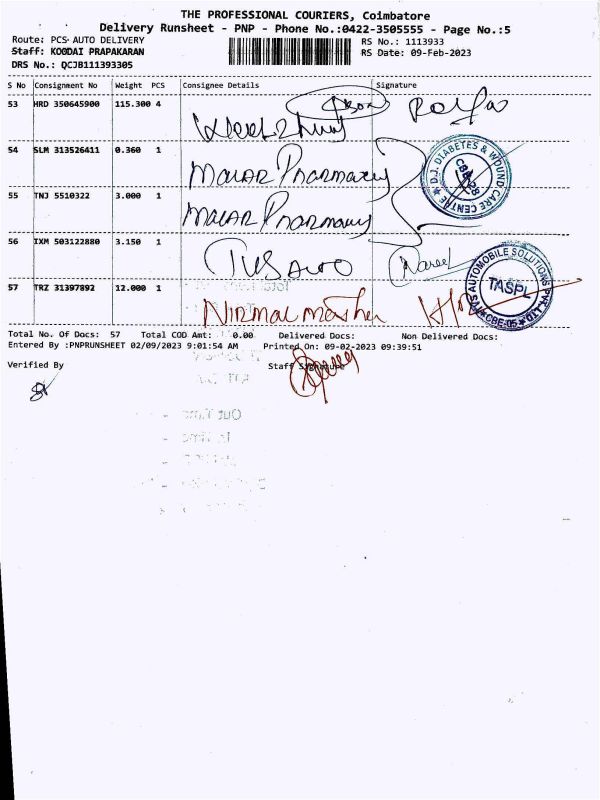 THE PROFESSIONAL COURIERS, Coimbatore
Delivery Runsheet - PNP - Phone No.:0422-3505555 - Page No.:5
Route: PCS AUTO DELIVERY
RS No.: 1113933
Staff: KOODAI PRAPAKARAN
RS Date: 09-Feb-2023
DRS No.: QCJB111393305
S No Consignment No Weight PCS Consignee Details Signature
53 HRD 350645900 115.300 4
54 SLM 313526411 0.360 1 Malar Pharmacy
D.J. DIABETES & WOUND CARE CENTRE
55 TNJ 5510322 3.000 1 Malar Pharmacy
56 IXM 503122880 3.150 1 TVS Auto
TVS AUTOMOBILE SOLUTIONS PVT LTD
TASPL
CBE-05
57 TRZ 31397892 12.000 1 Nirmal
Total No. Of Docs: 57 Total COD Amt: 0.00 Delivered Docs: Non Delivered Docs:
Entered By :PNPRUNSHEET 02/09/2023 9:01:54 AM Printed On: 09-02-2023 09:39:51
Verified By Staff Signature